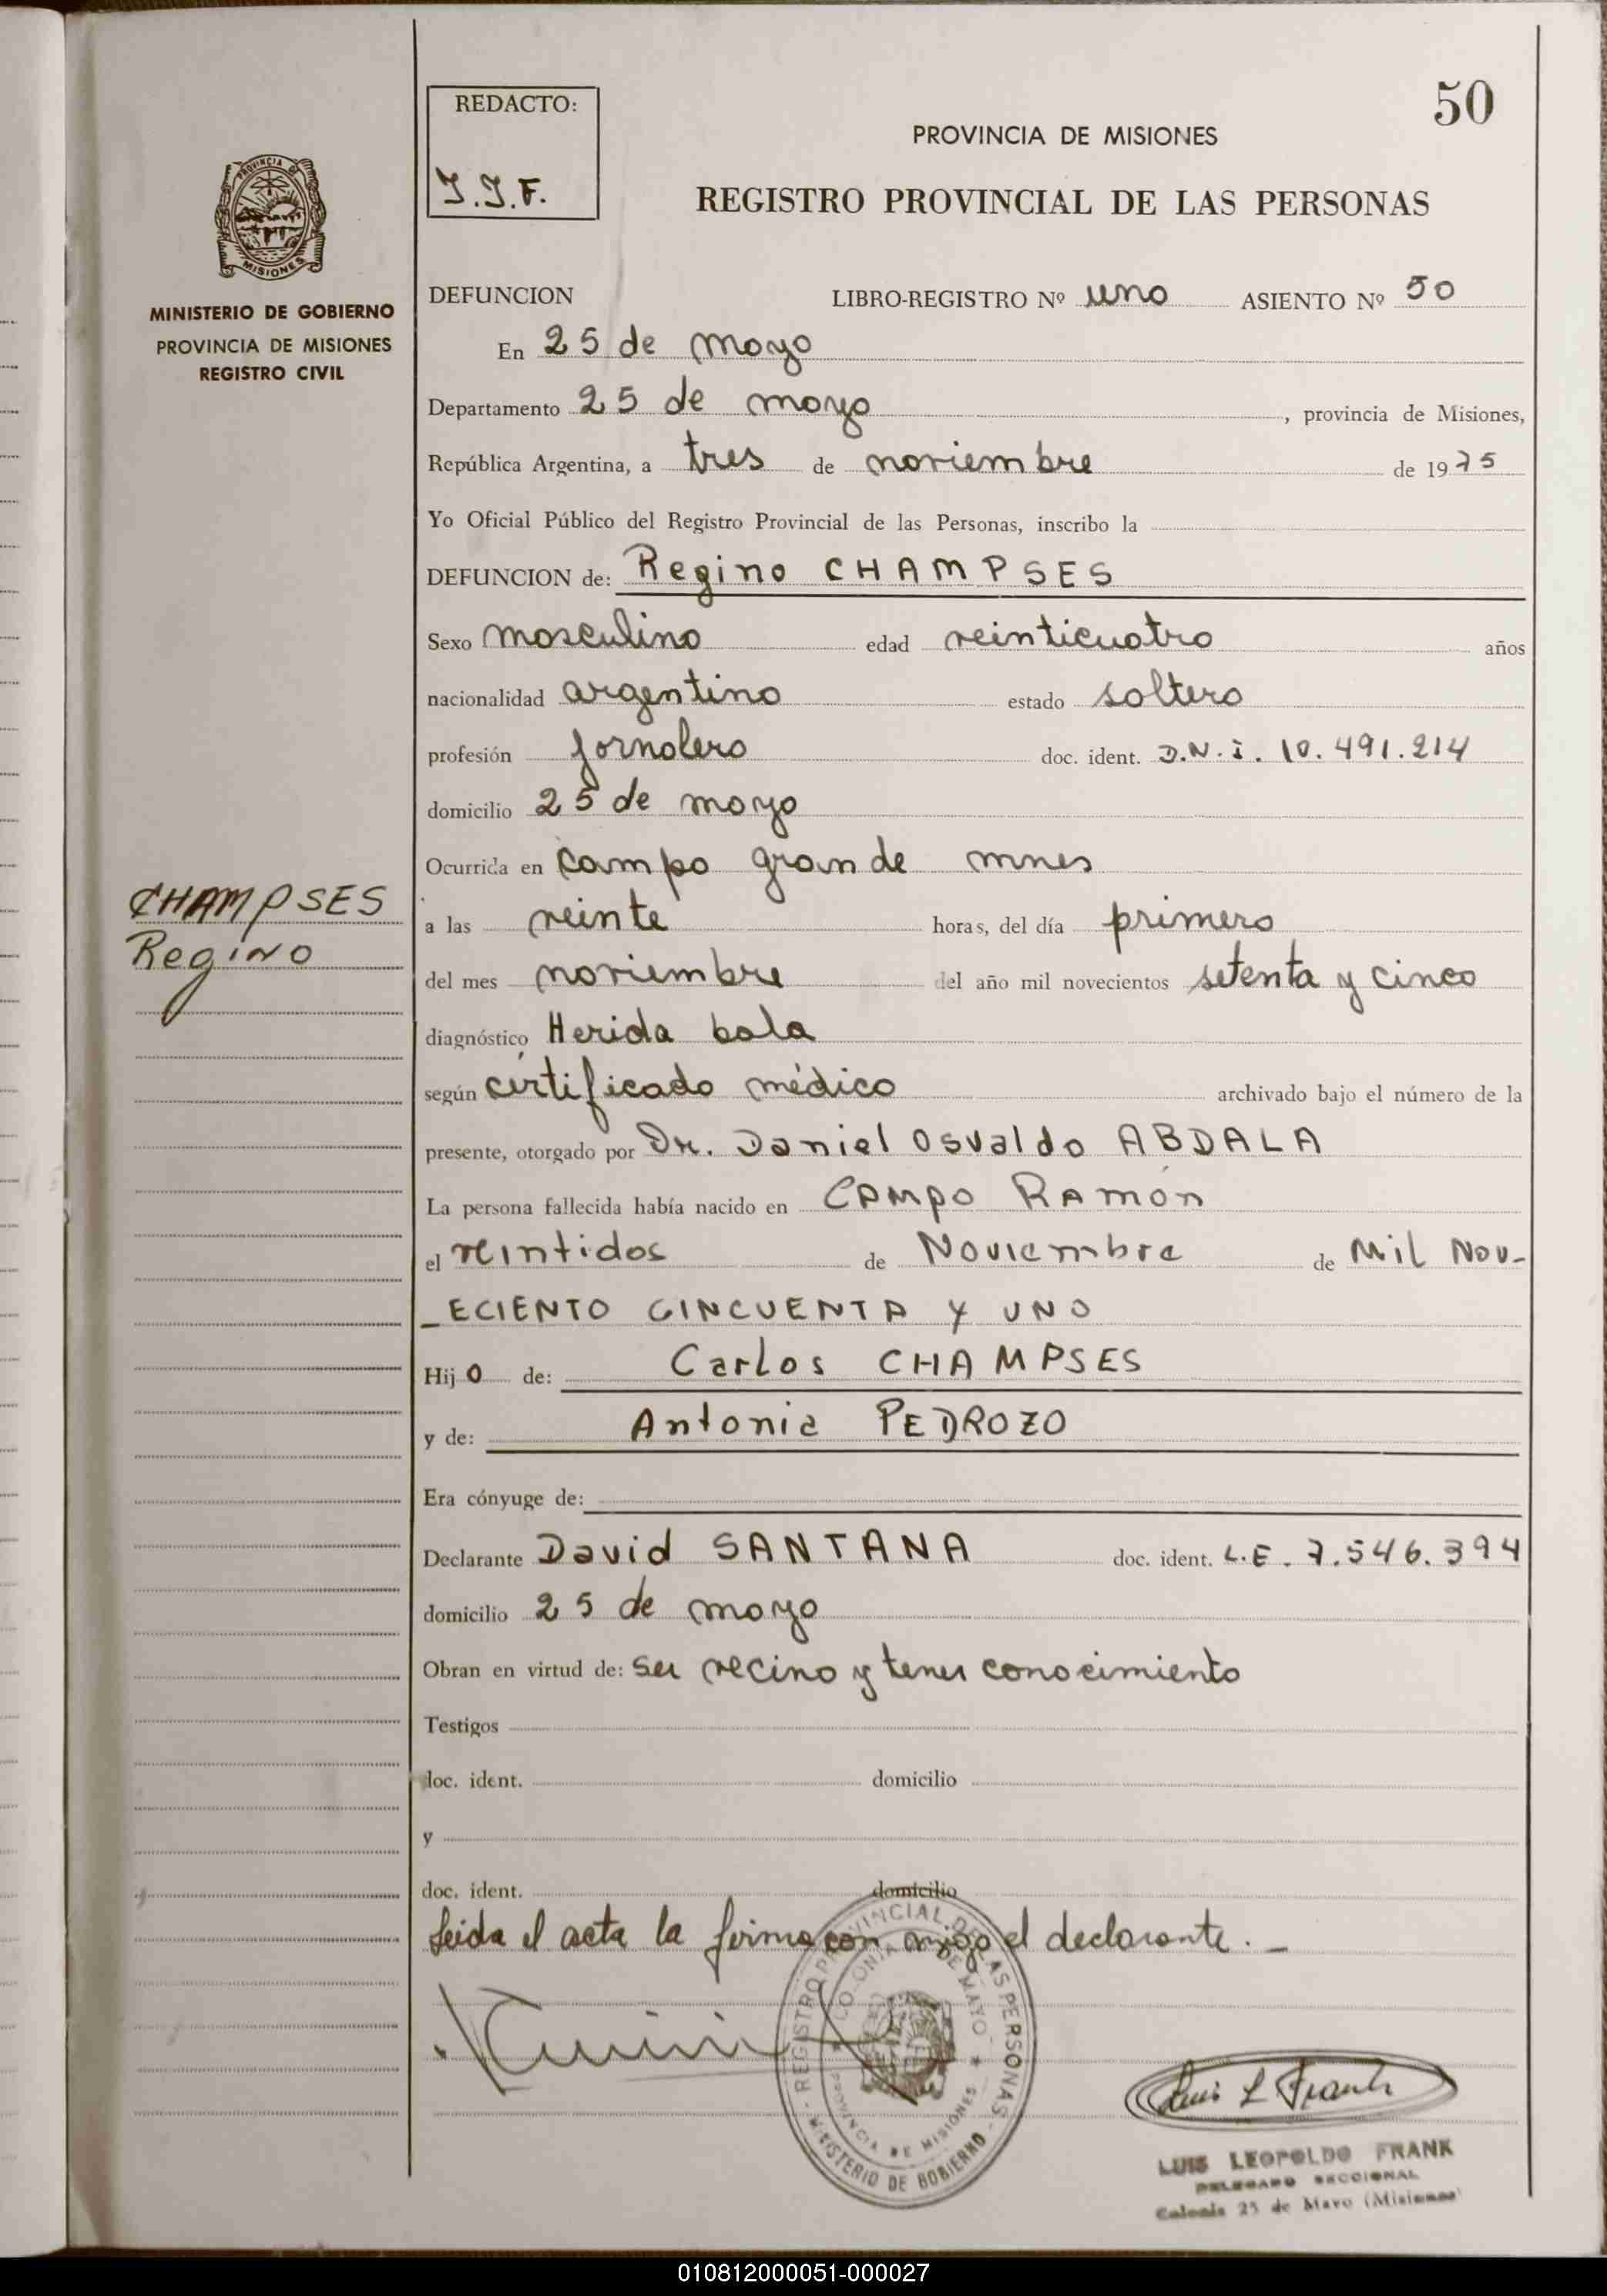 50
REDACTO:
J.J.F.
PROVINCIA DE MISIONES
REGISTRO PROVINCIAL DE LAS PERSONAS
PROVINCIA DE
MISIONES
MINISTERIO DE GOBIERNO
PROVINCIA DE MISIONES
REGISTRO CIVIL
CHAMPSES
Regino
DEFUNCION LIBRO-REGISTRO Nº uno ASIENTO Nº 50
En 25 de mayo
Departamento 25 de mayo, provincia de Misiones,
República Argentina, a tres de noviembre de 1975
Yo Oficial Público del Registro Provincial de las Personas, inscribo la
DEFUNCION de: Regino CHAMPSES
Sexo masculino edad veinticuatro años
nacionalidad argentino estado soltero
profesión jornalero doc. ident. D.N.i. 10.491.214
domicilio 25 de mayo
Ocurrida en campo grande mnes
a las veinte horas, del día primero
del mes noviembre del año mil novecientos setenta y cinco
diagnóstico Herida bala
según certificado médico archivado bajo el número de la
presente, otorgado por Dr. Daniel Osvaldo ABDALA
La persona fallecida había nacido en CAMPO RAMÓN
el veintidos de Noviembre de Mil Nov-
_ECIENTO CINCUENTA Y UNO
Hijo de: Carlos CHAMPSES
y de: Antonia PEDROZO
Era cónyuge de:
Declarante David SANTANA doc. ident. L.E. 7.546.394
domicilio 25 de mayo
Obran en virtud de: ser vecino y tener conocimiento
Testigos
doc. ident. domicilio
y
doc. ident. domicilio
Leida el acta la firma con migo el declarante. _
REGISTRO PROVINCIAL DE LAS PERSONAS
COLONIA 25 DE MAYO
PROVINCIA DE MISIONES
MINISTERIO DE GOBIERNO
Luis L Frank
LUIS LEOPOLDO FRANK
DELEGADO SECCIONAL
Colonia 25 de Mayo (Misiones)
010812000051-000027